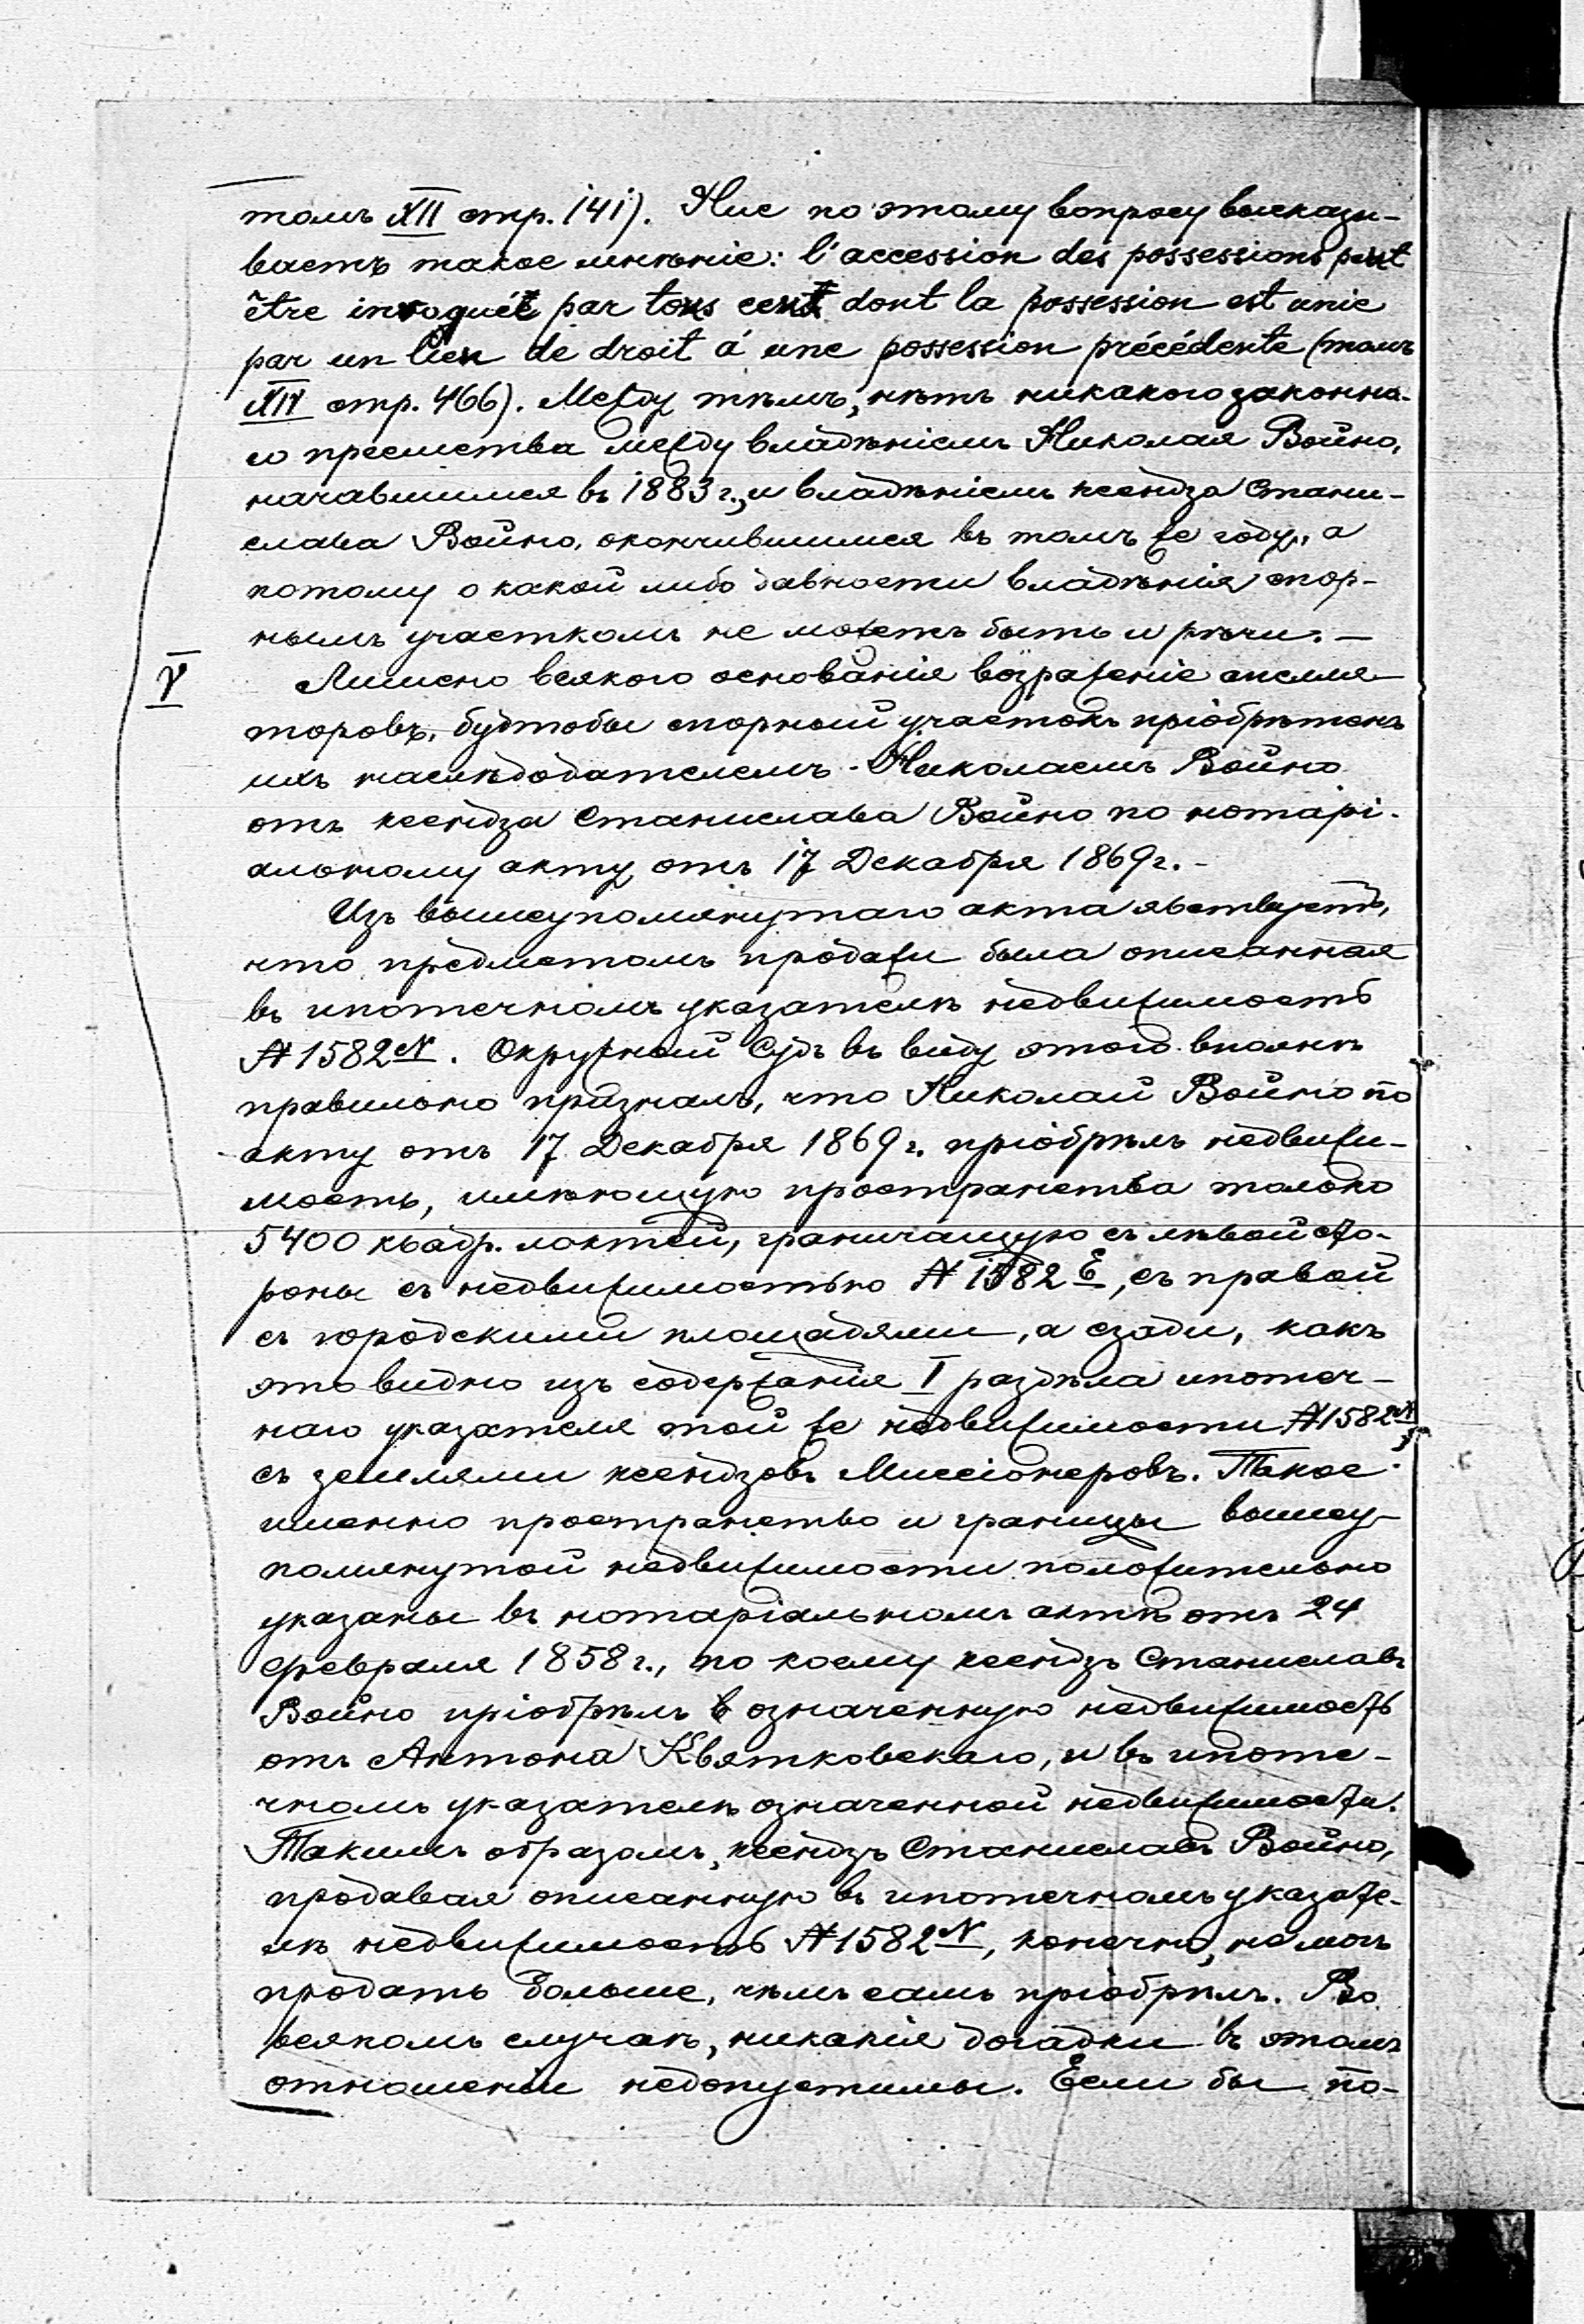 томъ XII стр. 141). Нис по этому вопросу высказы-
ваетъ такое мнѣніе: l'accession des possessions peut
être invoquée par tous ceux dont la possession est unie
par un lien de droit á une possession précédente (томъ
XIV стр. 466). Между тѣмъ, нѣтъ никакого законна-
го преемства между владѣніемъ Николая Войно,
начавшимся въ 1883 г., и владѣніемъ ксендза Стани-
слава Войно, окончившимся въ томъ же году, а
потому о какой либо давности владѣнія спор-
нымъ участкомъ не можетъ быть и рѣчи. —
V
Лишено всякого основанія возраженіе апелля-
торовъ, будтобы спорный участокъ пріобрѣтенъ
ихъ наслѣдодателемъ Николаемъ Войно
отъ ксендза Станислава Войно по нотарі-
альному акту отъ 17 Декабря 1869 г. -
Изъ вышеупомянутаго акта явствуетъ,
что предметомъ продажи была описанная
въ ипотечномъ указателѣ недвижимость
№ 1582 N. Окружной Судъ въ виду этого вполнѣ
правильно призналъ, что Николай Войно по
акту отъ 17 Декабря 1869 г. пріобрѣлъ недвижи-
мость, имѣющую пространства только
5400 квадр. локтей, граничащую съ лѣвой сто-
роны съ недвижимостью № 1582 E, съ правой
съ городскими площадями, а сзади, какъ
это видно изъ содержанія I раздѣла ипотеч-
наго указателя той же недвижимости № 1582 N,
съ землями ксендзовъ Миссіонеровъ. Такое
именно пространство и границы вышеу-
помянутой недвижимости положительно
указаны въ нотаріальномъ актѣ отъ 24
Февраля 1858 г., по коему ксендзъ Станиславъ
Войно пріобрѣлъ означенную недвижимость
отъ Антона Квятковскаго, и въ ипоте-
чномъ указателѣ означенной недвижимости.
Такимъ образомъ, ксендзъ Станиславъ Войно,
продавая описанную въ ипотечномъ указате-
лѣ недвижимость № 1582 N, конечно, не могъ
продать больше, чѣмъ самъ пріобрѣлъ. Во
всякомъ случаѣ, никакія догадки въ этомъ
отношеніи недопустимы. Если бы по-